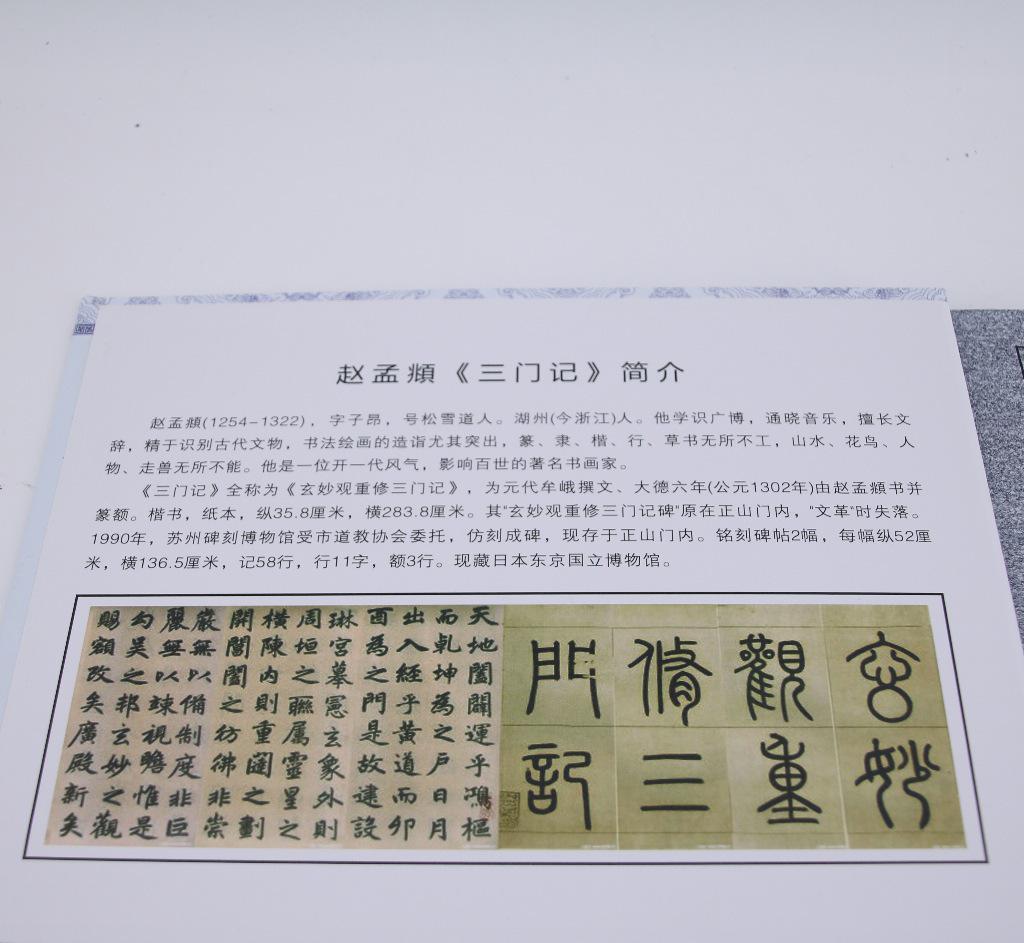 赵孟頫《三门记》简介
赵孟頫(1254-1322)，字子昂，号松雪道人。湖州(今浙江)人。他学识广博，通晓音乐，擅长文
辞，精于识别古代文物，书法绘画的造诣尤其突出，篆、隶、楷、行、草书无所不工，山水、花鸟、人
物、走兽无所不能。他是一位开一代风气，影响百世的著名书画家。
《三门记》全称为《玄妙观重修三门记》，为元代牟巘撰文、大德六年(公元1302年)由赵孟頫书并
篆额。楷书，纸本，纵35.8厘米，横283.8厘米。其"玄妙观重修三门记碑"原在正山门内，"文革"时失落。
1990年，苏州碑刻博物馆受市道教协会委托，仿刻成碑，现存于正山门内。铭刻碑帖2幅，每幅纵52厘
米，横136.5厘米，记58行，行11字，额3行。现藏日本东京国立博物馆。
玄妙
觀重
脩三
門記
天地闔闢運乎鴻樞
而乹坤為之户日月
出入經乎黄道而卯
酉為之門是故建設
琳宮摹憲玄象外則
周垣之聮属靈星之
横陳内則重闥之劃
開閶闔之彷彿非崇
嚴無以備制度非巨
麗無以竦視瞻惟是
勾吴之邦玄妙之觀
賜額改矣廣殿新矣